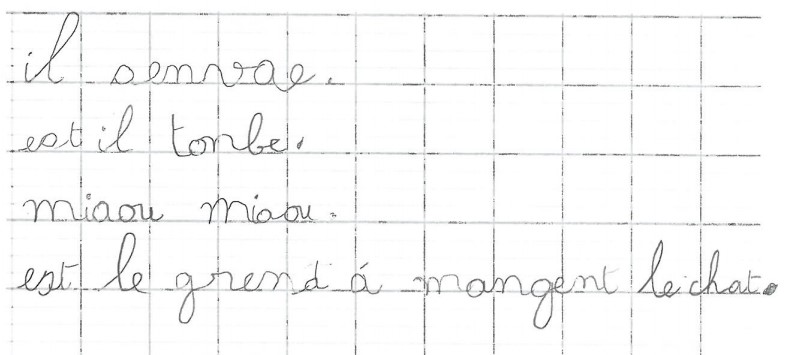 il sennvae.
est il tonbe.
miaou miaou.
est le grend á mangent le chat.